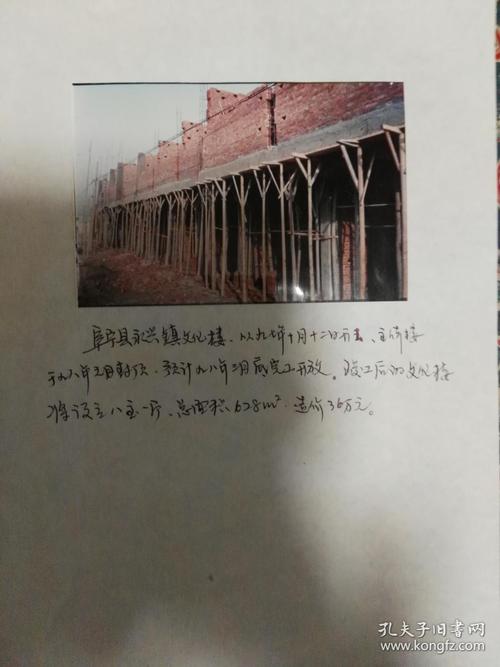 阜宁县永兴镇文化楼，从九七年十月十二日开工、主体楼
于九八年元月封顶，预计九八年二月底完工开放。竣工后的文化楼
将设立八室一厅、总面积628m²，造价36万元。
孔夫子旧书网
www.kongfz.com